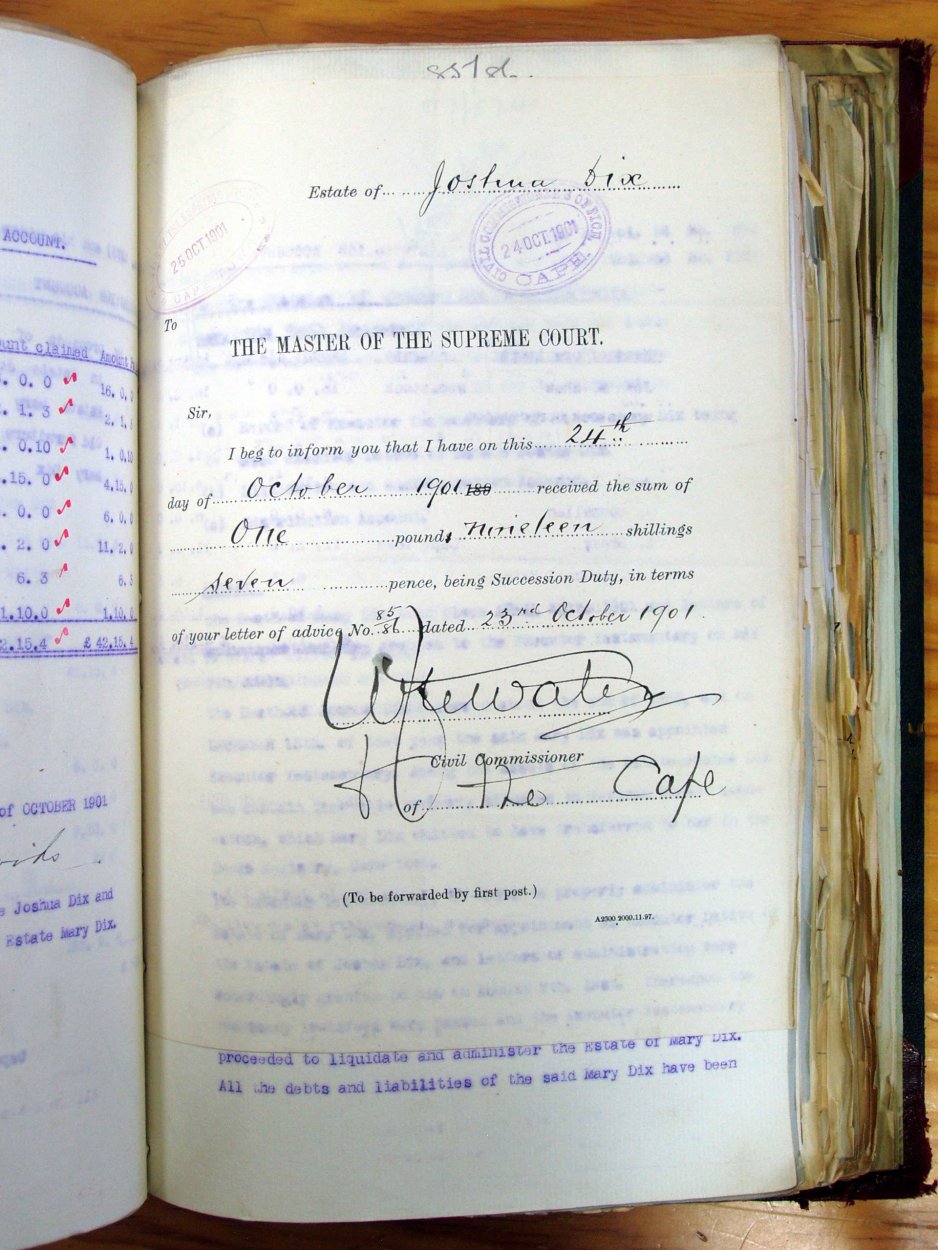 ACCOUNT.
claimed Amount
0. 0
16. 0.
1. 3
2. 1.
0.10
1. 0.10
.15. 0
4.15.
0. 0
6. 0.
2. 0
11. 2.
6. 3
6.
1.10.0
1.10.
2.15.4 £ 42.15.4
of OCTOBER 1901
Joshua Dix and
Estate Mary Dix.
Estate of Joshua Dix
25 OCT. 1901
CIVIL COMMISSIONER'S OFFICE.
24 OCT. 1901
CAPE.
To
THE MASTER OF THE SUPREME COURT.
Sir,
I beg to inform you that I have on this 24th
day of October 1901 189 received the sum of
One pounds nineteen shillings
seven pence, being Succession Duty, in terms
of your letter of advice No. 85/86 dated 23rd October 1901.
Civil Commissioner
of The Cape
(To be forwarded by first post.)
A2300 2000.11.97.
proceeded to liquidate and administer the Estate of Mary Dix.
All the debts and liabilities of the said Mary Dix have been